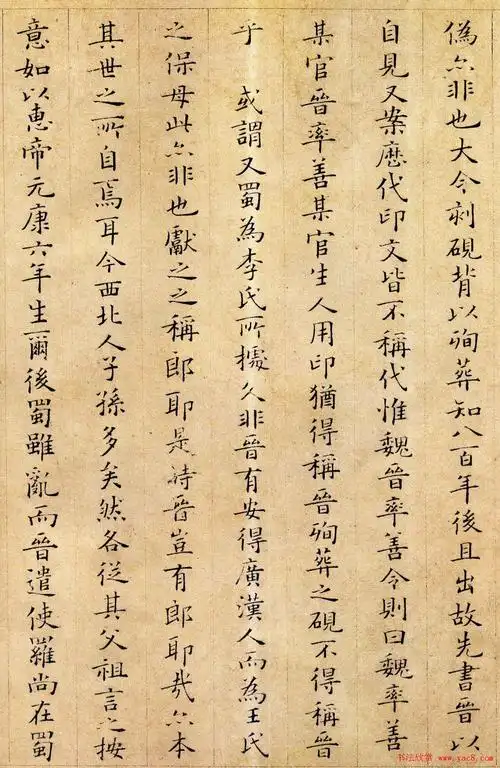 偽亦非也大令刻硯背以殉葬知八百年後且出故先書晉以
自見又案歷代印文皆不稱代惟魏晉率善令則曰魏率善
某官晉率善某官生人用印猶得稱晉殉葬之硯不得稱晉
乎 或謂又蜀為李氏所據久非晉有安得廣漢人而為王氏
之保母此亦非也獻之之稱郎耶是時晉豈有郎耶哉亦本
其世之所自焉耳今西北人子孫多矣然各從其父祖言之按
意如以惠帝元康六年生爾後蜀雖亂而晉遣使羅尚在蜀
书法欣赏 www.yac8.com